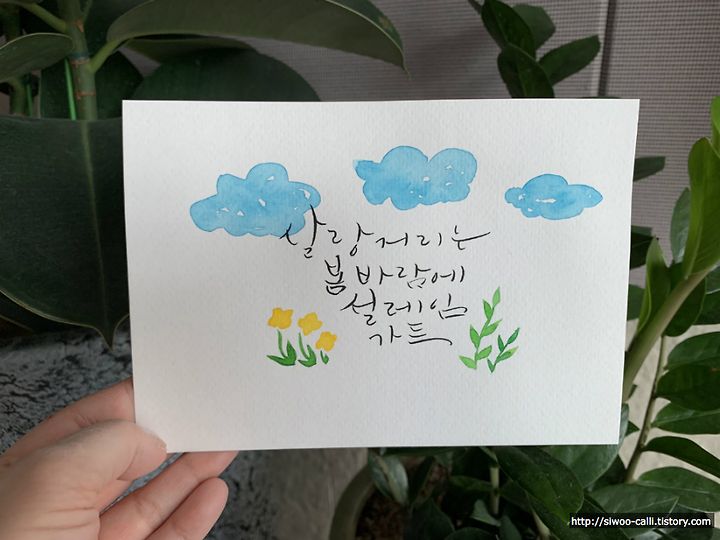 살랑거리는
봄바람에
설레임
가득
http://siwoo-calli.tistory.com